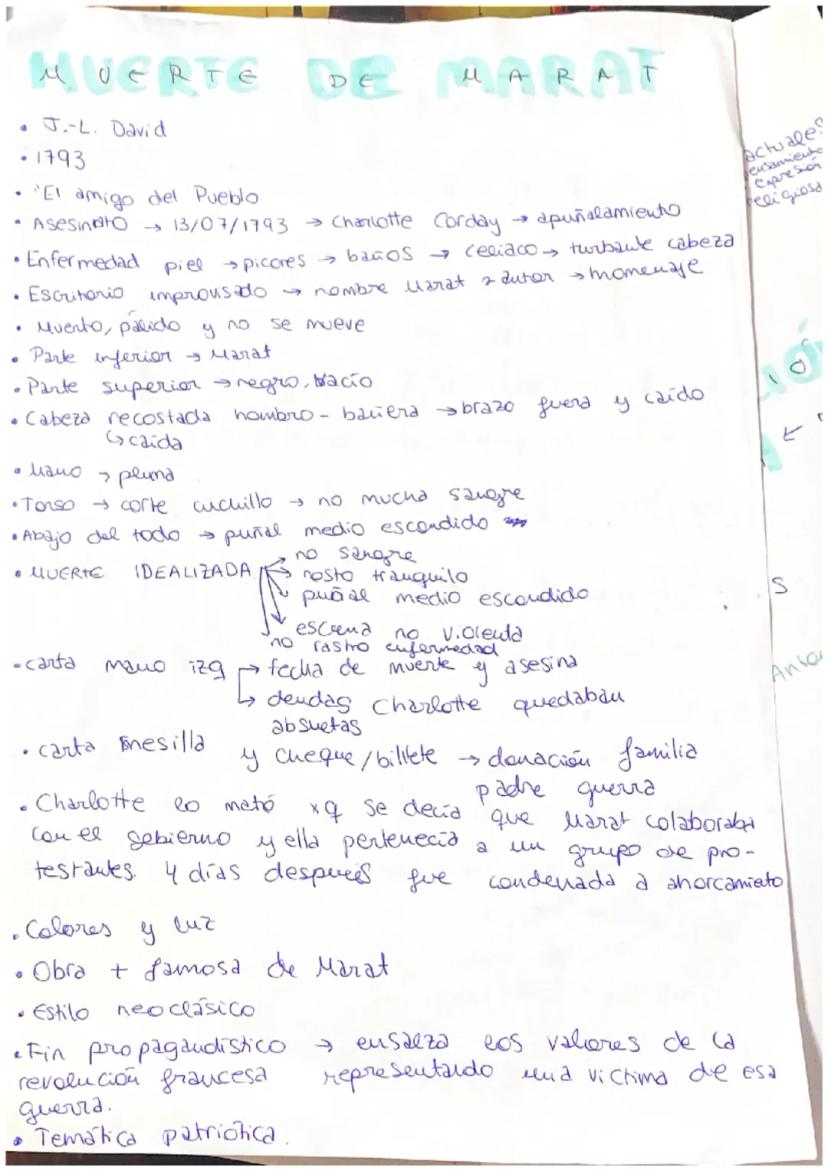 MUERTE DE MARAT
• J.-L. David
• 1793
• 'El amigo del Pueblo
• Asesinato → 13/07/1793 → Charlotte Corday → apuñalamiento
• Enfermedad piel → picores → baños → celiaco → turbante cabeza
• Escritorio improvisado → nombre Marat y autor → homenaje
• Muerto, pálido y no se mueve
• Parte inferior → Marat
• Parte superior → negro, vacío
• Cabeza recostada hombro - bañera → brazo fuera y caído
↳ caída
• Mano → pluma
• Torso → corte cuchillo → no mucha sangre
• Abajo del todo → puñal medio escondido
• MUERTE IDEALIZADA → no sangre
→ rosto tranquilo
→ puñal medio escondido
→ escena no violenta
no rastro enfermedad
- carta mano izq → fecha de muerte y asesina
↳ deudas Charlotte quedaban
absueltas
• carta mesilla y cheque/billete → donación familia
padre guerra
• Charlotte lo mató xq se decía que Marat colaboraba
con el gobierno y ella pertenecía a un grupo de pro-
testantes. 4 días después fue condenada a ahorcamieto
• Colores y luz
• Obra + famosa de Marat
• Estilo neoclásico
• Fin propagandístico → ensalza los valores de la
revolución francesa representando una víctima de esa
guerra.
• Temática patriótica.
actuales
ensamiento
expresión
religiosa
IÓ
S